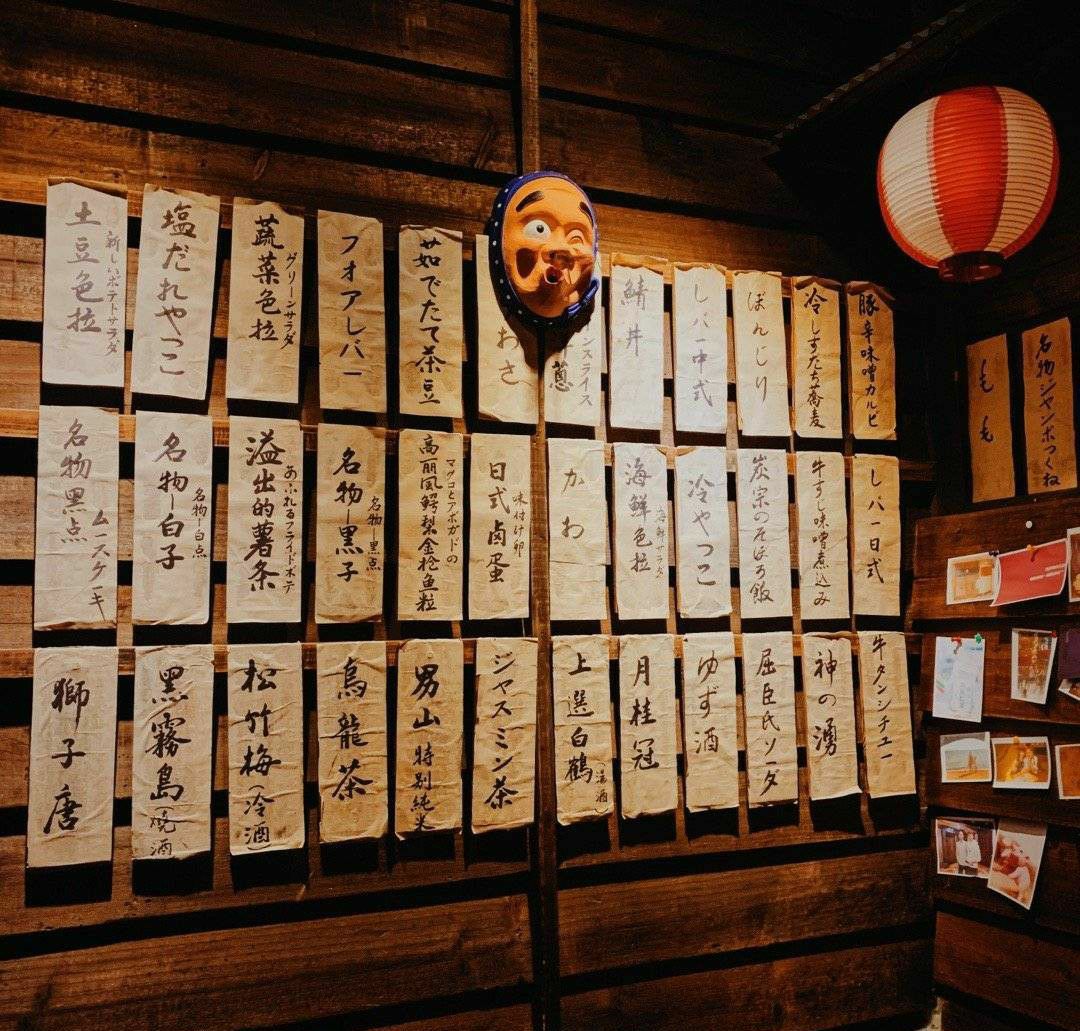 土豆色拉
新しいポテトサラダ
塩だれやっこ
蔬菜色拉
グリーンサラダ
フォアレバー
茹でたて茶豆
おさ
ンスライス
葱
鯖丼
レバー中式
ぼんじり
冷しすだち蕎麦
豚辛味噌カルビ
名物黑点
ムースケーキ
名物一白子
名物一白点
溢出的薯条
あふれるフライドポテ
名物一黒子
名物一黒点
高丽風鳄梨金枪鱼粒
マグロとアボガドの
日式卤蛋
味付け卵
かわ
海鮮色拉
海鮮サラダ
冷やっこ
炭宗のそぼろ飯
牛すじ味噌煮込み
レバー日式
獅子唐
黑霧島(焼酒)
松竹梅(冷酒)
烏龍茶
男山特別純米
ジャスミン茶
上選白鶴(清酒)
月桂冠
ゆず酒
屈臣氏ソーダ
神の湧
牛タンシチュー
名物ジャンボつくね
もも